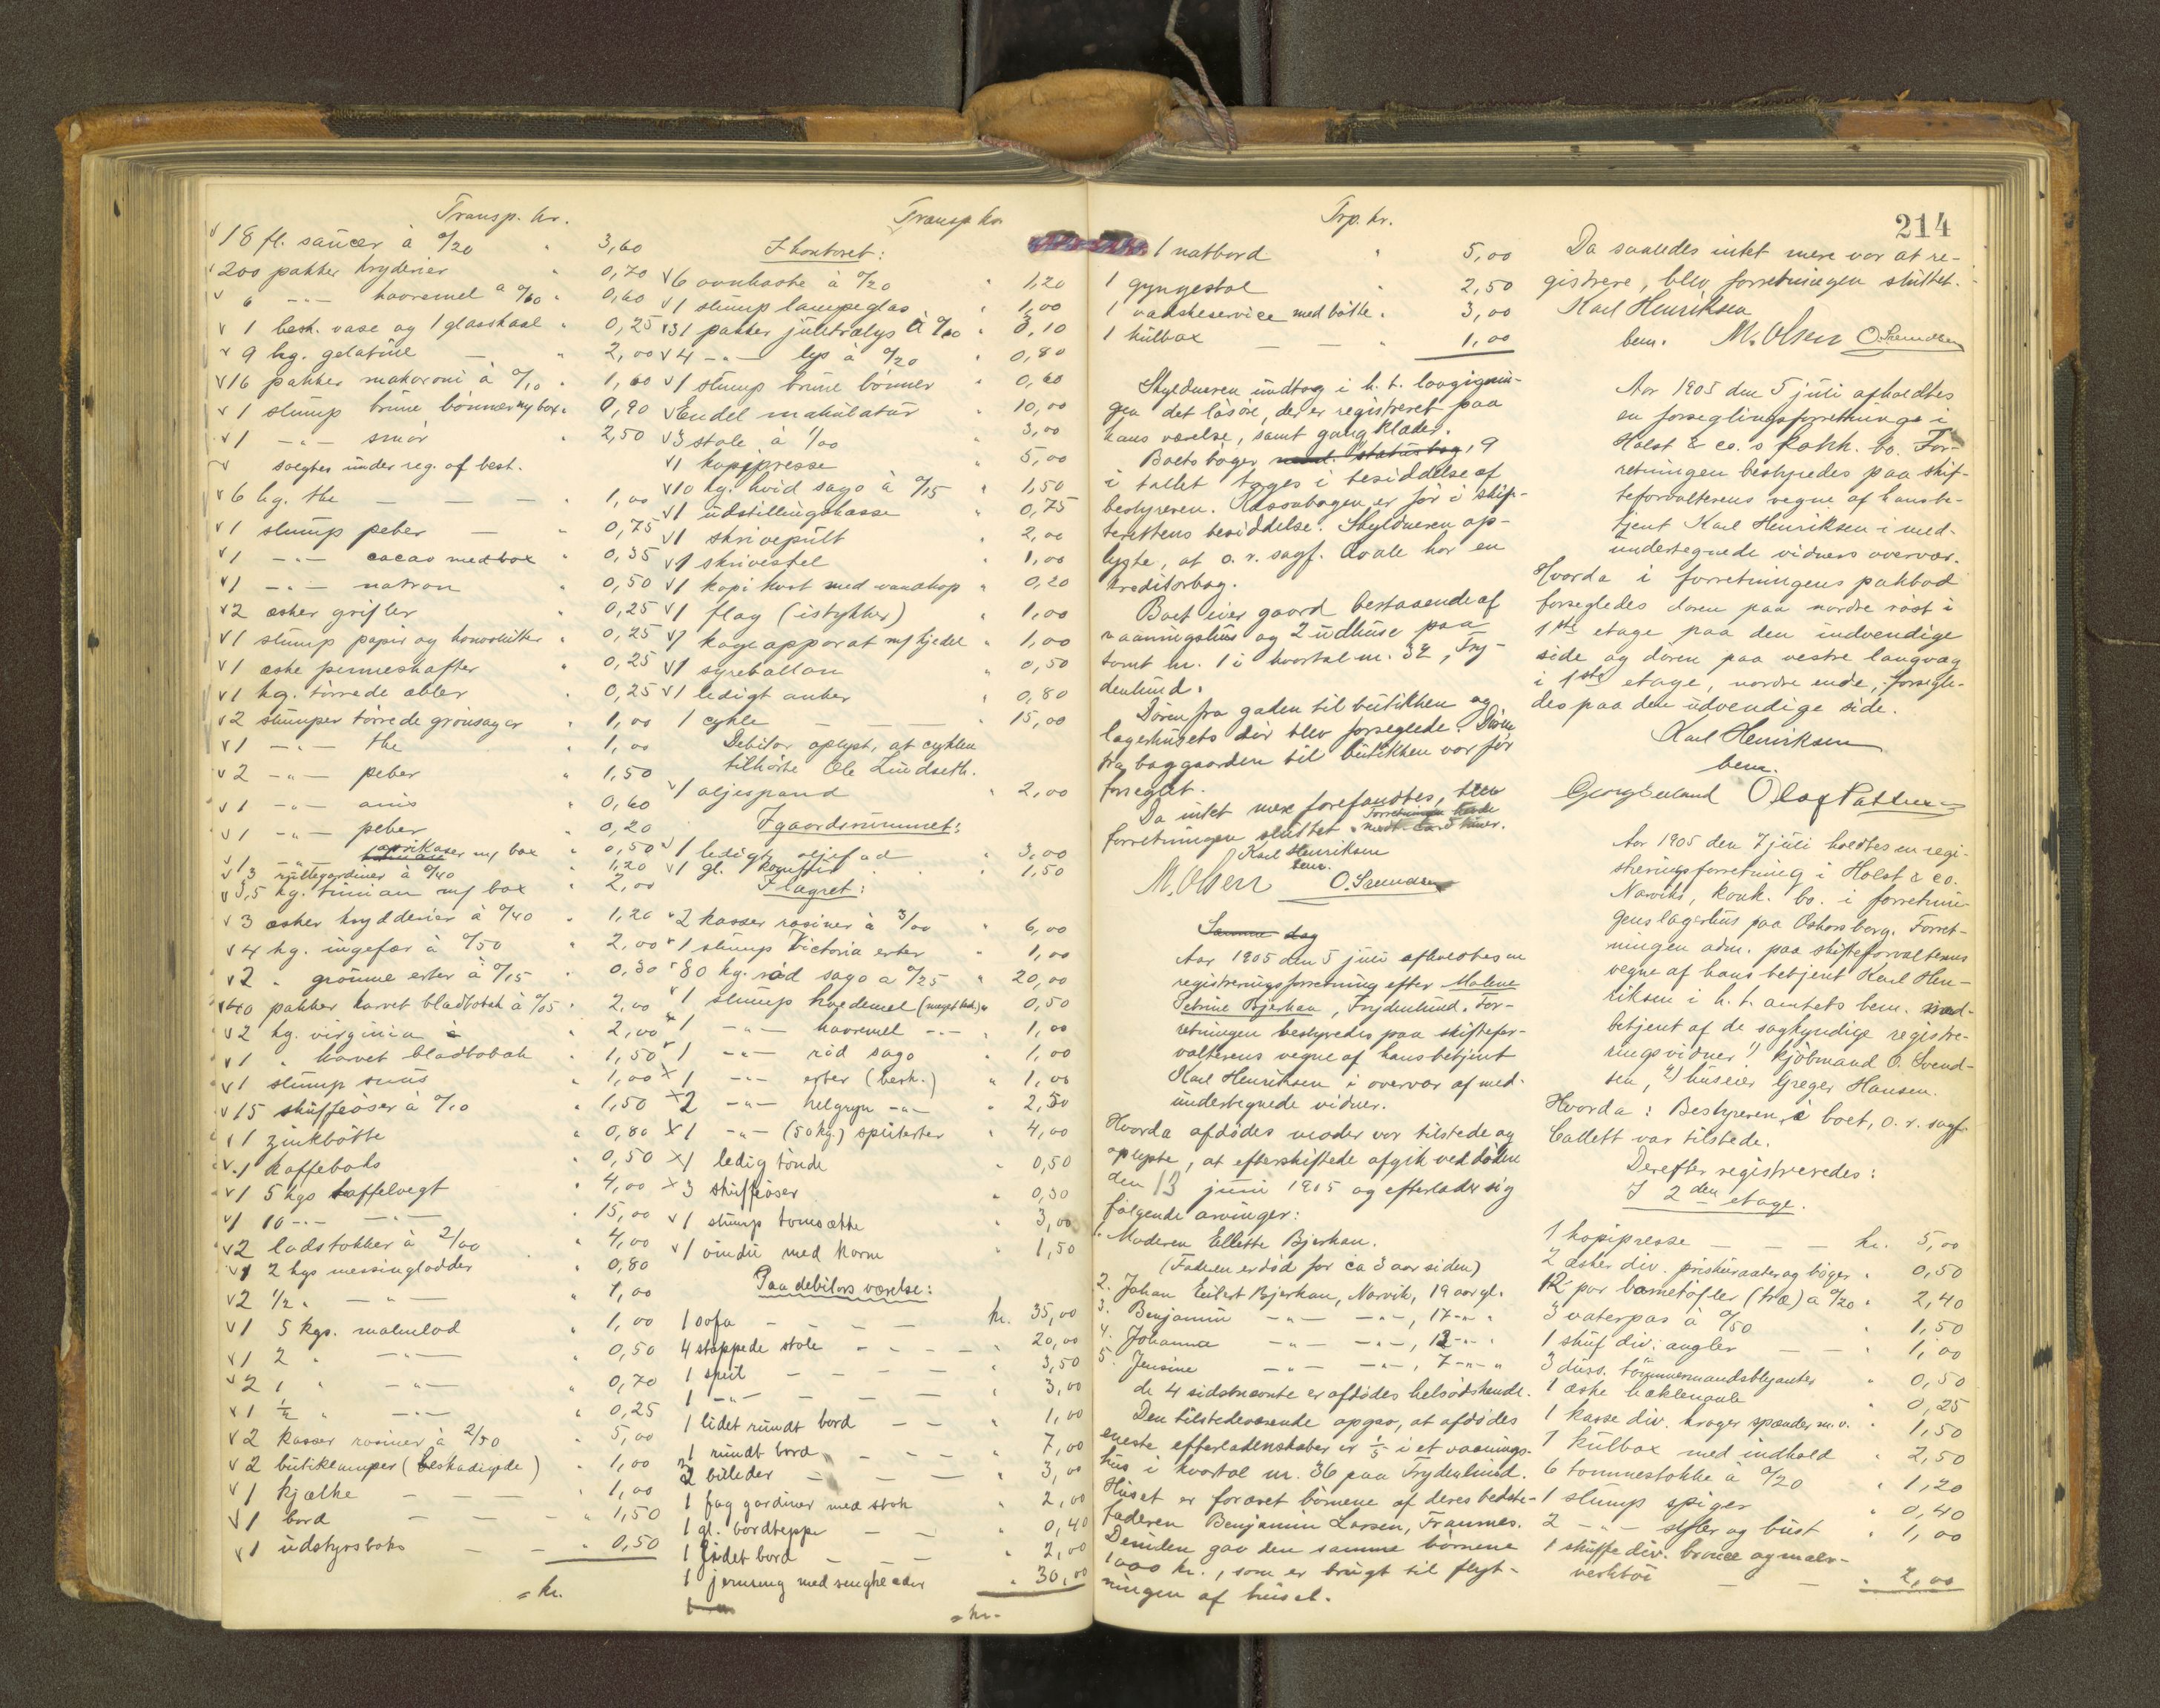 Transp. kr.
v 18 fl. saucer à 0/20 " 3,60
v 200 pakker kryderier " 0,70
v 6 -"- havremel à 0/10 " 0,60
v 1 besk. vase og 1 glasskaal " 0,25
v 9 kg. gelatine — " 2,00
v 16 pakker makaroni à 0/10 " 1,60
v 1 slump brune bönner m/ box " 0,90
v 1 -"- smör " 2,50
v solgtes under reg. af best.
v 6 kg. the — — — " 1,00
v 1 slump peber — " 0,75
v 1 -"- cacao med box " 0,35
v 1 -"- natron " 0,50
v 2 æsker grifler " 0,25
v 1 slump papir og " 0,25
v 1 æske penneskafter " 0,25
v 1 kg. törrede æbler " 0,25
v 2 slumper törrede grönsager " 1,00
v 1 -"- the " 1,00
v 2 -"- peber " 1,50
v 1 -"- anis " 0,60
v 1 -"- peber " 0,20
v 1 -"- aprikoser m/ box " 0,50
v 3 rullegardiner à 0/40 " 1,20
v 3,5 kg. timian m/ box " 2,00
v 3 æsker krydderier à 0/40 " 1,20
v 4 kg. ingefær à 0/50 " 2,00
v 2 " grönne erter à 0/15 " 0,30
v 40 pakker karvet bladtobak à 0/05 " 2,00
v 2 kg. virginia à " 2,00
v 1 " karvet bladtobak " 1,50
v 1 slump snus " 1,00
v 15 skuffeöser à 0/10 " 1,50
v 1 zinkbötte " 0,80
v 1 kaffeboks " 0,50
v 1 5 kgs taffelvegt " 4,00
v 1 10 -"- -"- " 15,00
v 2 ladstokker à 2/00 " 4,00
v 1 2 kgs messinglodder " 0,80
v 2 1/2 " -"- " 1,00
v 1 5 kgs. malmlod " 1,00
v 1 2 " -"- " 0,50
v 2 1 " -"- " 0,70
v 1 1/2 " -"- " 0,25
v 2 kasser rosiner à 2/50 " 5,00
v 2 butiklamper (beskadigede) " 1,00
v 1 kjælke — — — " 1,00
v 1 bord — — — " 1,50
v 1 udstyrsboks — — " 0,50
= kr.
Transp. kr.
I kontoret:
v 6 ovnkoste à 0/20 " 1,20
v 1 slump lampeglas " 1,00
v 31 pakker juletrælys à 0/10 " 3,10
v 4 -"- lys à 0/20 " 0,80
v 1 slump brune bönner " 0,60
v Endel makulatur " 10,00
v 3 stole à 1/00 " 3,00
v 1 kopipresse " 5,00
v 10 kg. hvid sago à 0/15 " 1,50
v 1 udstillingskasse " 0,75
v 1 skrivepult " 2,00
v 1 skrivestel " 1,00
v 1 kopi kost med vandkop " 0,20
v 1 flag (istykker) " 1,00
v 1 kogeapparat m/ kjedel " 1,00
v 1 syreballon " 0,50
v 1 ledigt anker " 0,80
1 cykle — — — " 15,00
Debitor oplyst, at cyklen
tilhörte Ole Lindseth.
v 1 oljespand " 2,00
I gaardsrummet:
v 1 ledigt oljefad " 3,00
v 1 gl. " 1,50
I lagret:
v 2 kasser rosiner à 3/00 " 6,00
v 1 slump Victoria erter " 1,00
v 80 kg. röd sago a 0/25 " 20,00
v 1 slump hvedemel (meget besk.) " 0,50
v 1 -"- havremel -"- " 1,00
v 1 -"- röd sago " 1,00
x 1 -"- erter (besk.) " 1,00
x 2 -"- helgryn -"- " 2,50
x 1 -"- (50 kg.) spliterter " 4,00
x 1 ledig tönde " 0,50
x 3 skuffeöser " 0,30
v 1 slump tomsække " 3,00
v 1 vindu med karm " 1,50
Paa debitors værelse:
1 sofa — — — — kr. 35,00
4 stoppede stole — — — " 20,00
1 speil — — — — " 3,50
1 -"- — — — — " 3,00
1 lidet rundt bord — — " 1,00
1 rundt bord — — — " 7,00
2 billeder — — — — " 3,00
1 fag gardiner med stok " 2,00
1 gl. bordteppe — — " 0,40
1 lidet bord — — — " 2,00
1 jernseng med sengklæder " 30,00
= kr.
Trp. kr.
1 natbord " 5,00
1 gyngestol " 2,50
1 vaskeservice med bötte " 3,00
1 kulbox — — " 1,00
Skyldneren undtog i h. t. lovgivnin-
gen det lösöre, der er registreret paa
hans værelse, samt gangklæder.
Boets böger medt. statusbog, 9
i tallet tages i besiddelse af
bestyreren. Kassabogen er för i skif-
terettens besiddelse. Skyldneren op-
lyste, at o. r. sagf. har en
kreditorbog.
Boet eier gaard bestaaende af
vaaningshus og 2 udhuse paa
tomt nr. 1 i kvartal nr. 32, Fry-
denlund.
Dören fra gaden til butikken og
lagerhusets dör blev forseglede. Dören
fra baggaarden til butikken var för
forseglet.
Da intet mere forefandtes, blev
forretningen sluttet.
Karl Henriksen
bem.
M. Olsen O. Svendsen
Samme dag
Aar 1905 den 5 juli afholdtes en
registreringsforretning efter Malene
Petrine Bjerkan, Frydenlund. For-
retningen bestyredes paa skiftefor-
valterens vegne af hans betjent
Karl Henriksen i overvær af med-
undertegnede vidner.
Hvorda afdödes moder var tilstede og
oplyste, at efterskiftede afgik ved döden
den 13 juni 1905 og efterlader sig
fölgende arvinger:
1. Moderen Ellette Bjerkan.
(Faderen er död for ca 3 aar siden)
2. Johan Eilert Bjerkan, Narvik, 19 aar gl.
3. Benjamin -"- -"-, 17 -"- "
4. Johanna -"- -"-, 12 -"- "
5. Jensine -"- -"-, 7 -"- "
de 4 sidstnævnte er afdödes helsödskende.
Den tilstedeværende opgav, at afdödes
eneste efterladenskaber er 1/5 i et vaanings-
hus i kvartal nr. 36 paa Frydenlund.
Huset er foræret börnene af deres bedste-
faderen Benjamin Larsen, Trannes.
Desuden gav den samme börnene
1000 kr., som er brugt til flyt-
ningen af huset.
214
Da saaledes intet mere var at re-
gistrere, blev forretningen sluttet.
Karl Henriksen
bem. M. Olsen O. Svendsen
Aar 1905 den 5 juli afholdtes
en forseglingsforretning i
Holst & co.s konk. bo. For-
retningen bestyredes paa skif-
teforvalterens vegne af hans be-
tjent Karl Henriksen i med-
undertegnede vidners overvær.
Hvorda i forretningens pakbod
forsegledes dören paa nordre röst i
1ste etage paa den indvendige
side og dören paa vestre langvæg
i 1ste etage, nordre ende, forsegle-
des paa den udvendige side.
Karl Henriksen
bem.
Aar 1905 den 7 juli holdtes en regi-
streringsforretning i Holst & co.
Narviks, konk. bo. i forretnin-
gens lagerhus paa Oskarsberg. Forret-
ningen adm. paa skifteforvalterens
vegne af hans betjent Karl Hen-
riksen i h. t. amtets bem. med-
betjent af de sagkyndige registre-
ringsvidner 1) kjöbmand O. Svend-
sen, 2) huseier Greger Hansen.
Hvorda: Bestyreren i boet, o. r. sagf.
Callett var tilstede.
Derefter registreredes:
I 2den etage.
1 kopipresse — — — kr. 5,00
2 æsker div. priskuranter og böger " 0,50
12 par barnetöfler (træ) a 0/20 " 2,40
3 vaterpas à 0/50 " 1,50
1 skuf div. angler — — " 1,00
3 duss. tömmermandsblyanter " 0,50
1 æske heklenaale " 0,25
1 kasse div. kroger spænder m. v. " 1,50
1 kulbox med indhold " 2,50
6 tommestokke à 0/20 " 1,20
1 slump spiger " 0,40
2 -"- stifter og bust " 1,00
1 skuffe div. bronce og maler-
verktöi — — " 2,00